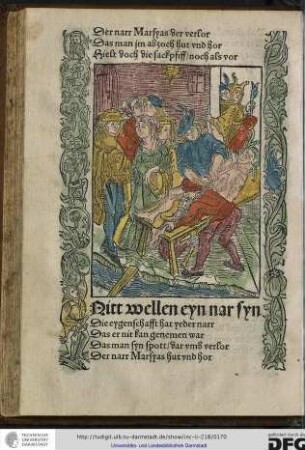 Der narr Marsyas der verlor
Das man jm abzoch hut vnd hor
Hielt doch die sackpfiff / noch als vor
Nitt wellen eyn nar syn
Die eygenschafft hat yeder narr
Das er nit kan genemen war
Das man syn spott / dar vmb verlor
Der narr Marsyas hut vnd hor
TECHNISCHE
UNIVERSITÄT
DARMSTADT
http://tudigit.ulb.tu-darmstadt.de/show/inc-ii-218/0170
Universitäts- und Landesbibliothek Darmstadt
DFG